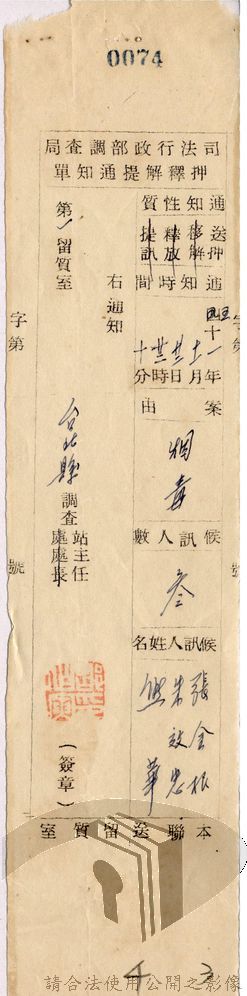 0074
司法行政部調查局
押釋解提通知單
通知性質
送押
移解
釋放
提訊
通知時間
年月日時分
案由
烟毒
候訊人數
叁
候訊人姓名
張金根
忠
華
右通知
第一留質室
台北縣調查
站主任
處處長
(簽章)
本聯送留質室
字第 號
字第 號
4 3
請合法使用公開之影像